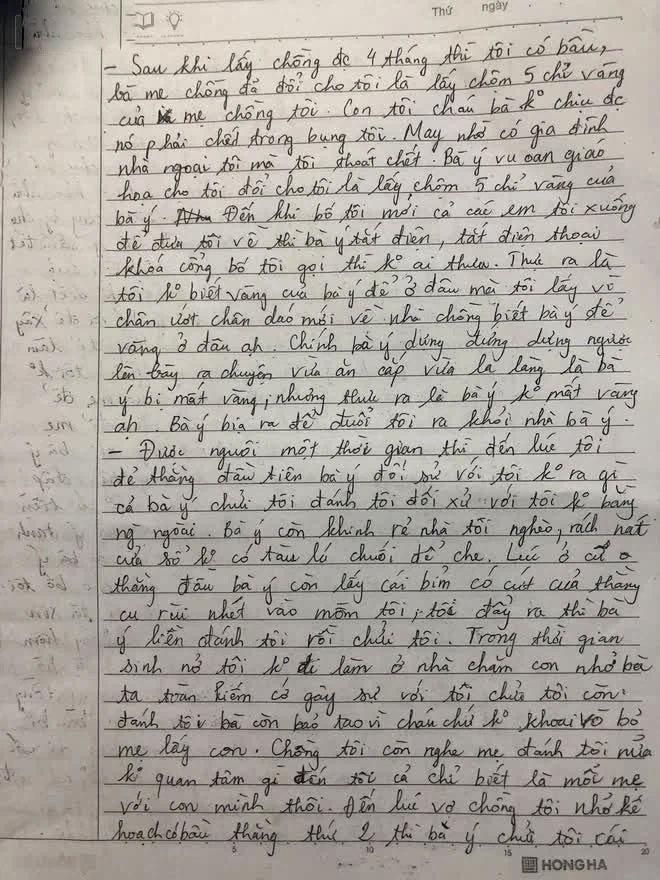 Thứ ngày
- Sau khi lấy chồng đc 4 tháng thì tôi có bầu,
bà mẹ chồng đã đổ cho tôi là lấy chộm 5 chỉ vàng
của mẹ chồng tôi. Con tôi cháu bà k° chịu đc
nó phải chết trong bụng tôi. May nhờ có gia đình
nhà ngoại tôi mà tôi thoát chết. Bà ý vu oan giáo
hoạ cho tôi đổi cho tôi là lấy chộm 5 chỉ vàng của
bà ý. Đến khi bố tôi mới cả các em tôi xuống
để đưa tôi về thì bà ý tắt điện, tắt điện thoại
khoá cổng bố tôi gọi thì k° ai thưa. Thực ra là
tôi k° biết vàng của bà ý để ở đâu mà tôi lấy vì
chân ướt chân dáo mới về nhà chồng biết bà ý để
vàng ở đâu ạh. Chính bà ý dựng đứng dựng ngược
lên bày ra chuyện vừa ăn cắp vừa la làng là bà
ý bị mất vàng, nhưng thực ra là bà ý k° mất vàng
ạh. Bà ý bịa ra để đuổi tôi ra khỏi nhà bà ý.
- Được nguôi một thời gian thì đến lúc tôi
đẻ thằng đầu tiên bà ý đối sử với tôi k° ra gì
cả bà ý chửi tôi đánh tôi đối xử với tôi k° bằng
ng ngoài. Bà ý còn khinh rẻ nhà tôi nghèo, rách nát
cửa sổ k° có tàu lá chuối để che. Lúc ở cữ
thằng đầu bà ý còn lấy cái bỉm có cứt của thằng
cu rùi nhét vào mồm tôi, tôi đẩy ra thì bà
ý liền đánh tôi rồi chửi tôi. Trong thời gian
sinh nở tôi k° đi làm ở nhà chăm con nhỏ bà
ta toàn kiếm cớ gây sự với tôi chửi tôi còn
đánh tôi bà còn bảo tao vì cháu chứ k° khoai bỏ
mẹ lấy con. Chồng tôi còn nghe mẹ đánh tôi nữa
k° quan tâm gì đến tôi cả chỉ biết là mỗi mẹ
với con mình thôi. Đến lúc vợ chồng tôi nhỡ kế
hoạch có bầu thằng thứ 2 thì bà ý chửi tôi cái
5 10 15 20
HONG HA